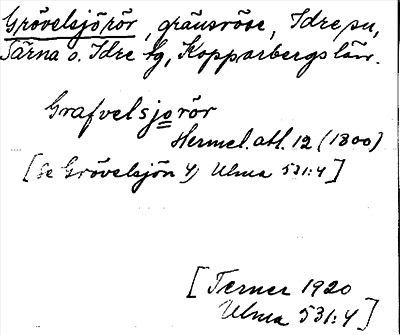 Grövelsjörör, gränsröse, Idre sn,
Särna o. Idre tg, Kopparbergs län.
Grafvelsjorör
Hermel. atl. 12 (1800)
[Se Grövelsjön 4) Ulma 531:4]
[Terner 1920
Ulma 531:4]